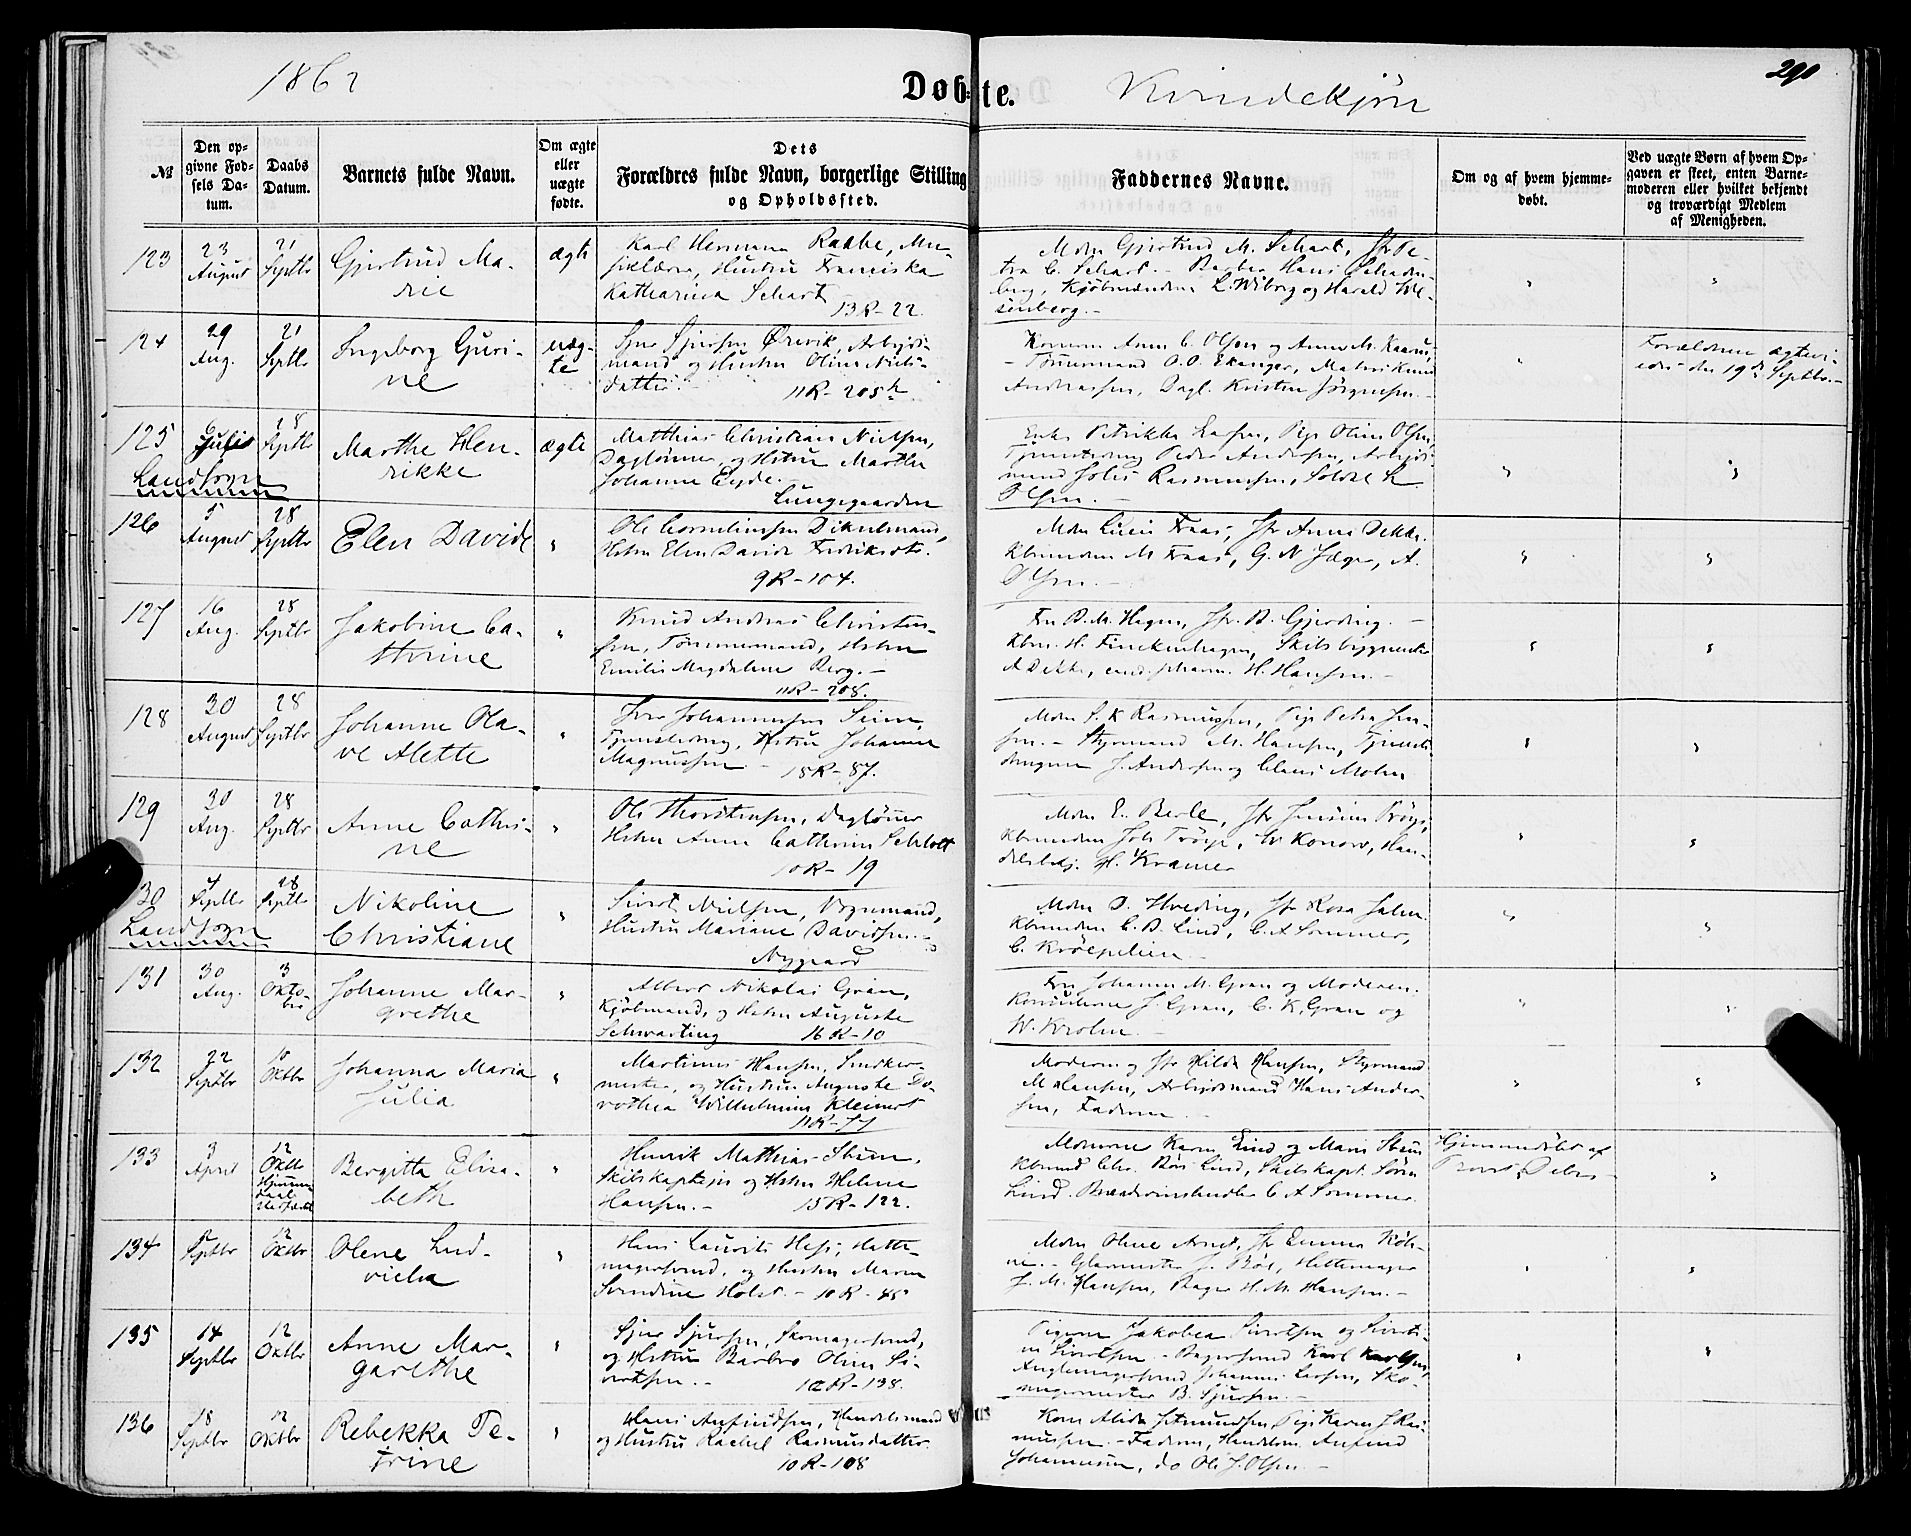 1862
Døb=te.
Kvindekjøn
290
No
Den op-
givne Fød-
sels Da-
tum.
Daabs
Datum.
Barnets fulde Navn.
Om ægte
eller
uægte
fødte.
Dets
Forældres fulde Navn, borgerlige Stilling
og Opholdssted.
Faddernes Navne.
Om og af hvem hjemme-
døbt.
Ved uægte Børn af hvem Op-
gaven er skeet, enten Barne-
moderen eller hvilket bekjendt
og troværdigt Medlem
af Menigheden.
123
23
August
21
Septbr
Gjertrud Ma-
rie
ægte
Karl Hermann Raabe, Mu-
siklærer, Hustru Franciska
Katharina Schart
13R-22.
Mdm Gjertrud M. Schart, Jfr Pe-
tra C. Schart.- Barber Hans
Kjøbmændene L. Wiborg og Harald
124
29
Aug.
21
Septbr
Ingeborg Guri-
ne
uæg-
te
Sjur Sjursen Ørevik, Arbeids-
mand og Hustru Oline Niels-
datter.
11R-205h
Konerne Anna C. Olsen og Anne M.
Tømmermand O. O. Ekanger, Matros Knud
Andreassen, Dagl. Kristen Jørgensen.-
Forældrene ægtevi-
ede den 19de Septbr.-
125
6
Juli
28
Septbr
Landsogn
Marthe Hen-
rikke
ægte
Matthias Christian Nielsen,
Daglønner, og Hstru Marthe
Johanne Eyde.
Lungegaarden
Enke Petrikke Larsen, Pige Oline Olsen,
Tjenestedreng Peder Andersen, Arbeids-
mand Rasmussen, Soldat
Olsen.-
126
5
August
28
Septbr
Elen Davide
"
Ole Corneliussen
Hstru Elen Davide Fredriksdtr.
9R-104.
Mdm Faae, Jfr Anna Dekke.
Kbmendene M. Faae, G. N. Jæger, A.
Olsen.-
127
16
Aug.
28
Septbr
Jakobine Ca-
thrine
"
Knud Andreas Christen-
sen, Tømmermand, Hstru
Emilie Magdalene Berg.-
11R-208.
Fru B. M. Hagen, Jfr. B. Gjerding.-
Kbm. H. Finckenhagen, Skibsbygmester
A Dekke, H. Hansen.-
128
30
August
28
Septbr
Johanne Ola-
ve Alette
"
Iver Johannessen Seim,
Tjenestedreng, Hstru Johanne
Magnussen -
18R-87.
Mdm S. K Rasmussen, Pige Petra Jen-
sen.- Styrmand M. Hansen, Tjeneste-
J. Andersen og Claus Mohn
129
30
Aug.
28
Septbr
Anne Cathri-
ne
"
Ole Thorstensen, Daglønner
Hstru Anne Cathrine Schlott
10R-19
Mdm E. Berle, Jfr
Kbmendene Joh W Konow, Han-
H. Kramer
130
4
Septbr
28
Septbr
Landsogn
Nikoline
Christiane
"
Sivert Nielsen, Vognmand,
Hustru Mariane Davidsen.-
Nygaard
Mdm D. Hveding, Jfr Rosa Jahn.
Kbmendene C. D. Lind, C. A Sommer,
C. Krøepelien.-
131
30
Aug.
3
Okto-
ber
Johanne Mar-
grethe
"
Albert Nikolai Gran,
Kjøbmand, og Hstru Auguste
Schwarting
16R-10
Fru Johanne M. Gran og Moderen.
Konsulerne J. Gran, C. K. Gran og
W. Krohn.-
132
22
Septbr
10
Oktbr
Johanna Maria
Julia
"
Martinus Hansen, Snedker-
mester, og Hustru Auguste Do-
rothea Wilhelmine Kleinert
11R-77
Moderen og Jfr Hilda Hansen, Styrmand
M Hansen, Arbeidsmand Hans Ander-
sen, Faderen.-
133
3
April
12
Oktbr
Bergitta Elisa-
beth
"
Henrik Mathias Steen,
Skibskaptejn og Hstru Helene
Hansen.-
15R-122.
Mdmerne Karen Lind og Maria Steen
Kbmend Chr. Lind, Skibskapt. Søren
Lind. C A Sommer.
Hjemmedøbt af
Provst
134
Septbr
12
Oktbr
Olene Lud-
vicka
"
Hans Laurits Hess, Hatte-
magersvend, og Hustru Maren
Svendine Holst.-
10R-45
Mdm Oline Jfr Emma
Glarmester J. Hattemager
J. M. Hansen, Bager H. M. Hansen.-
135
14
Septbr
12
Oktbr
Anne Mar-
garethe
"
Sjur Sjursen, Skomagersvend,
og Hstru Barbro Oline Si-
vertsen.-
12R-138.
Pigerne Jakobea Sivertsen og
Sivertsen - Bagersvend Karl Karlsen,
Johannes Larsen, Sko-
magermester B. Sjursen.-
136
18
Septbr
12
Oktbr
Rebekka Pe-
trine
"
Hans Anfindsen, Handelsmand
og Hustru Rachel Rasmusdatter
10R-108
Kone Alida Pige Karen J Ras-
mussen.- Faderen, Handelsm. Anfind
Johannesen, do Ole J. Olsen.-